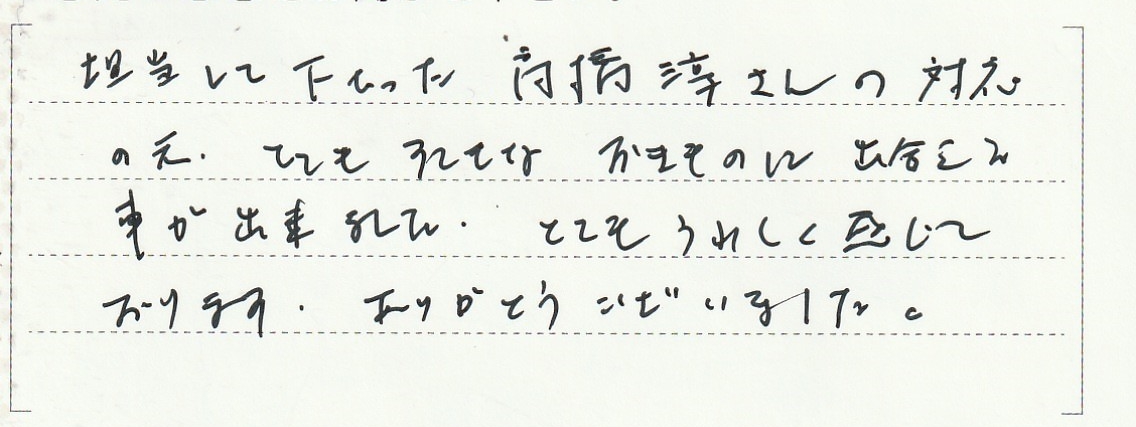 担当して下さった 髙橋 淳さんの 対応
の元. とても すてきな おきものに 出合える
事が 出来ました. とてもうれしく 感じて
おります. ありがとうございました。